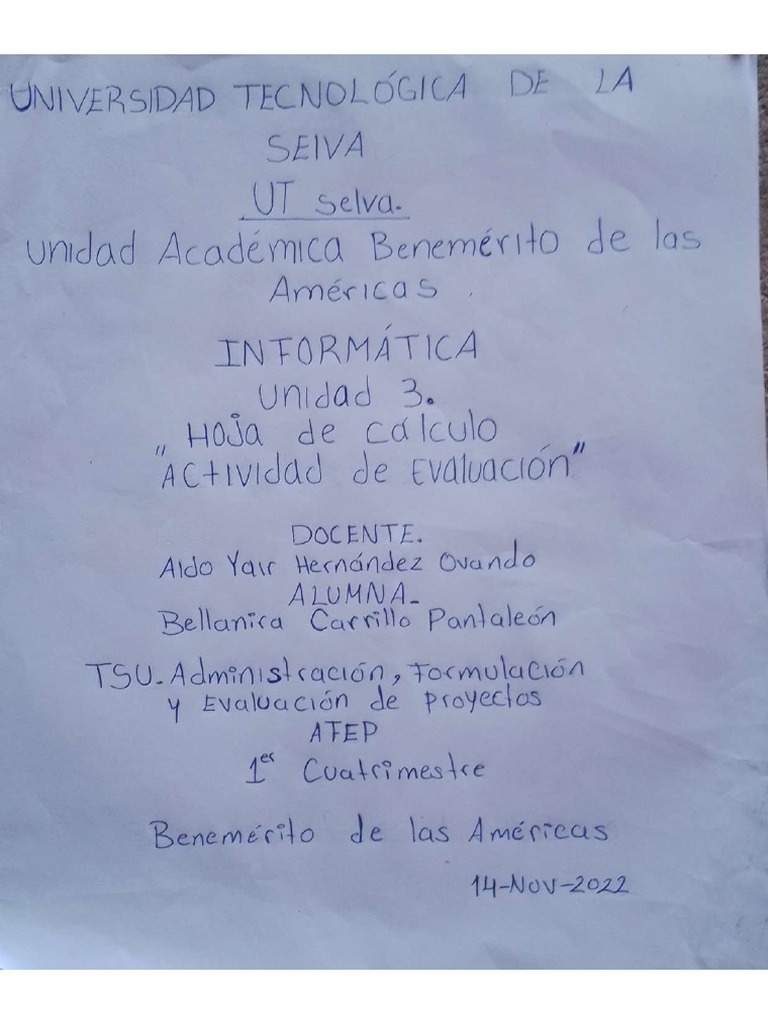 UNIVERSIDAD TECNOLÓGICA DE LA
SElVA
UT selva.
Unidad Académica Benemérito de las
Américas.
INFORMÁTICA
Unidad 3.
"Hoja de cálculo
"Actividad de Evaluación"
DOCENTE.
Aldo Yair Hernández Ovando
ALUMNA-
Bellanira Carrillo Pantaleón
TSU. Administración, Formulación
y Evaluación de proyectos
AFEP
1er Cuatrimestre
Benemérito de las Américas
14-Nov-2022